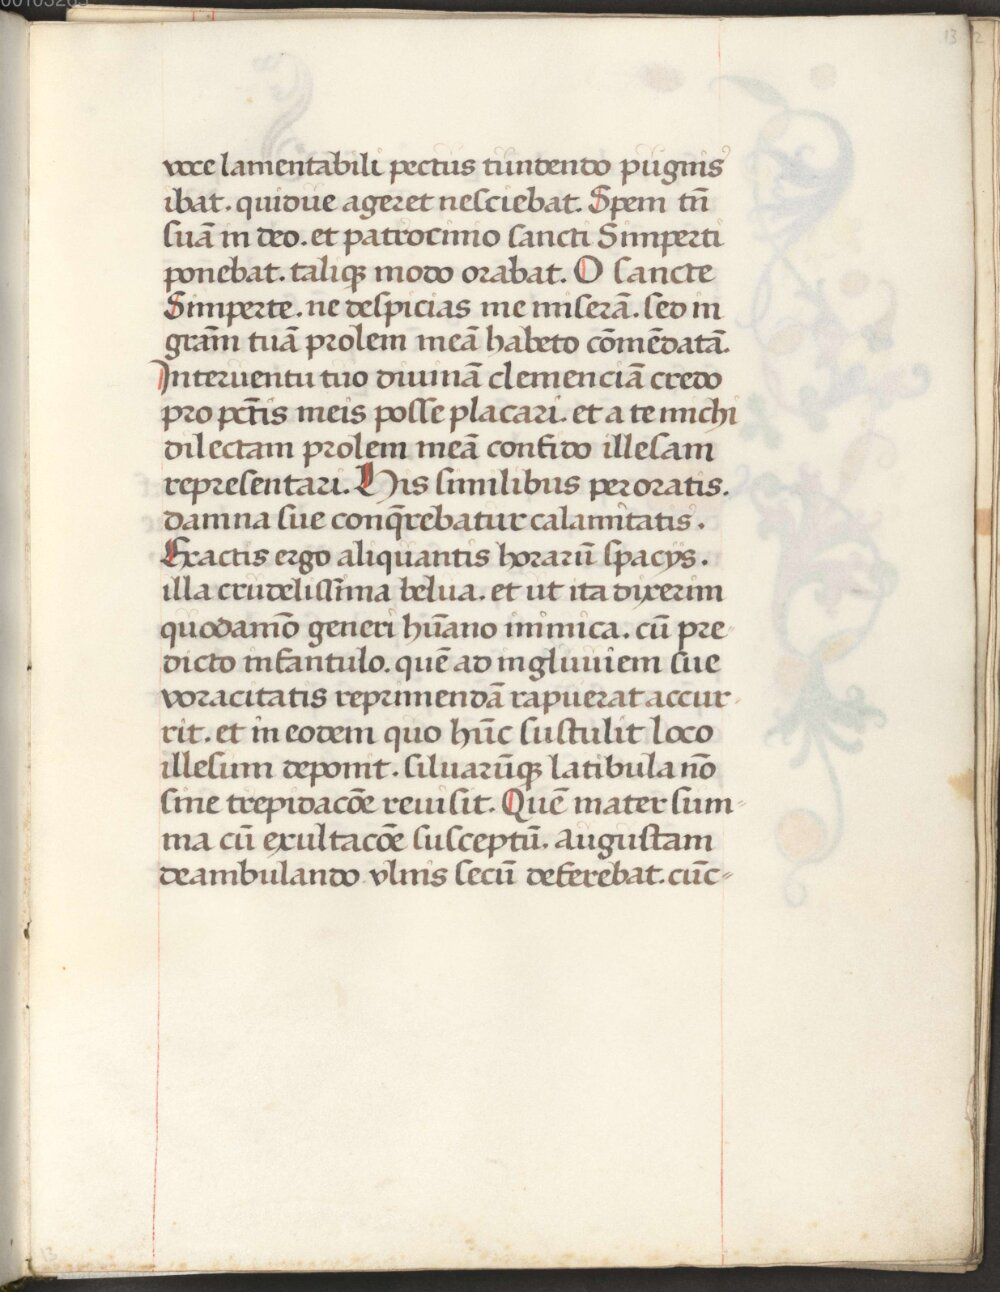 voce lamentabili pectus tundendo pugnis
ibat. quidue ageret nesciebat. Spem tn̄
suā in deo. et patrocinio sancti Simperti
ponebat. taliqꝫ modo orabat. O sancte
Simperte. ne despicias me miserā. sed in
grām tuā prolem meā habeto cōmēdatā.
Interuentu tuo diuinā clemenciā credo
pro pct̄is meis posse placari. et a te michi
dilectam prolem meā confido illesam
representari. His similibus peroratis.
damna sue conq̄rebatur calamitatis.
Exactis ergo aliquantis horarū spacys.
illa crudelissima belua. et ut ita dixerim
quodam̄o generi hūano inimica. cū pre
dicto infantulo. quē ad ingluuiem sue
voracitatis reprimendā rapuerat accur-
rit. et in eodem quo hūc sustulit loco
illesum deponit. siluarūqꝫ latibula nō
sine trepidacōe reuisit. Quē mater sum-
ma cū exultacōe susceptū. augustam
deambulando vlnis secū deferebat. cūc-
13
13